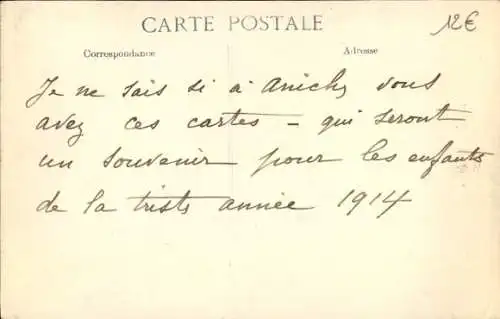 CARTE POSTALE
12€
Correspondance
Adresse
Je ne sais si à Anichy vous
avez ces cartes – qui seront
un souvenir pour les enfants
de la triste année 1914